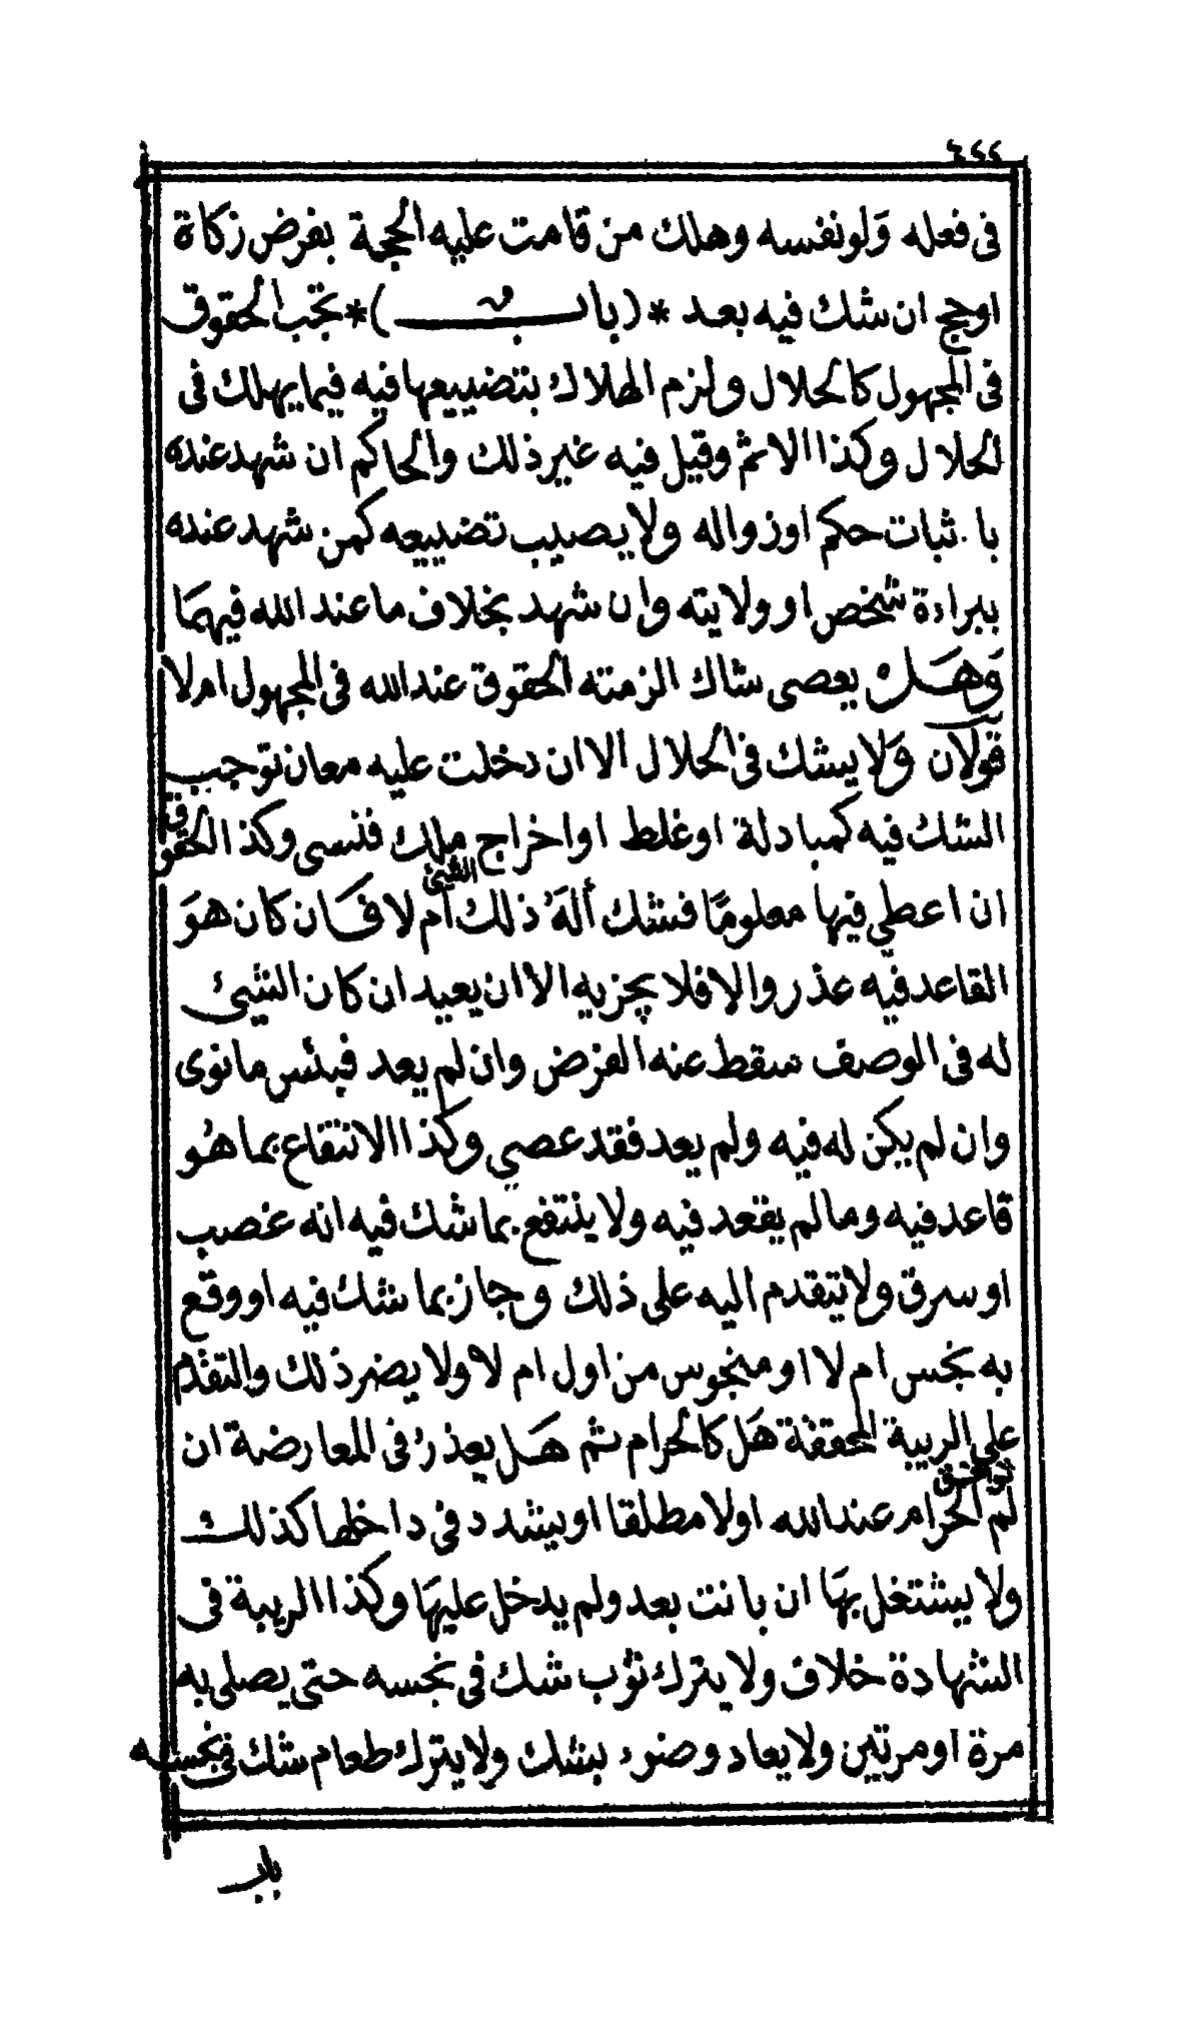 ٤٢٢
فى فعله وَلونفسه وهلك من قامت عليه الحجة بفرض زكاة
اوحج ان شك فيه بعد *(باب)* تجب الحقوق
فى المجهول كالحلال ولزم الهلاك بتضييعها فيه فيما يهلك فى
الحلال وكذا الاثم وقيل فيه غير ذلك والحاكم ان شهد عنده
باثبات حكم اوزواله ولا يصيب تضييعه كمن شهد عنده
ببراءة شخص او ولايته وان شهد بخلاف ما عند الله فيهمَا
وَهَل يعصى شاك الزمته الحقوق عند الله فى المجهول ام لا
قولان وَلا يشك فى الحلال الا ان دخلت عليه معان توجب
الشك فيه كمبادلة اوغلط اواخراج ملك فنسى وكذا الحقوق
ان اعطي فيها معلومًا فشك ألهَ ذلك الشئ ام لا فَان كان هوَ
القاعد فيه عذر والا فلا يجزيه الا ان يعيد ان كان الشئ
له فى الوصف سقط عنه الفرض وان لم يعد فبئس ما نوى
وان لم يكن له فيه ولم يعد فقد عصي وكذا الانتقاع بما هُو
قاعد فيه وما لم يقعد فيه ولا ينتفع بما شك فيه انه غصب
او سرق ولا يتقدم اليه على ذلك وجاز بما شك فيه اووقع
به نجس ام لا اومنجوس من اول ام لا ولا يضر ذلك والتقدم
على الريبة المحققة هَل كالحرام ثم هَل يعذرُ فى المعارضة ان
لم توافق الحرام عند الله اولا مطلقا اويشدد فى داخلها كذلك
ولا يشتغل بهَا ان بانت بعد ولم يدخل عليهَا وكذا الريبة فى
الشهادة خلاف ولا يترك ثوب شك فى نجسه حتى يصلى به
مرة اومرتين ولا يعاد وضوء بشك ولا يترك طعام شك فى نجسه
باب